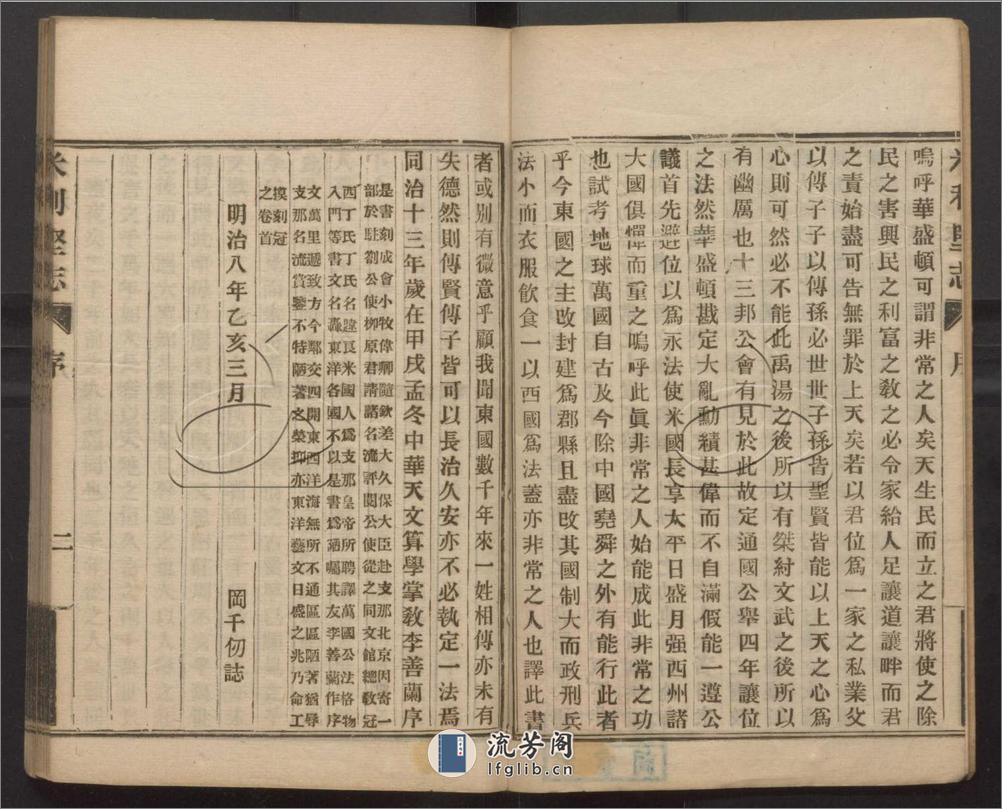 嗚呼華盛頓可謂非常之人矣天生民而立之君將使之除
民之害興民之利富之敎之必令家給人足讓道讓畔而君
之責始盡可告無罪於上天矣若以君位爲一家之私業父
以傳子子以傳孫必世世子孫皆聖賢皆能以上天之心爲
心則可然必不能此禹湯之後所以有桀紂文武之後所以
有幽厲也十三邦公會有見於此故定通國公舉四年讓位
之法然華盛頓戡定大亂勳績甚偉而不自滿假能一遵公
議首先避位以爲永法使米國長享太平日盛月强西州諸
大國俱憚而重之嗚呼此眞非常之人始能成此非常之功
也試考地球萬國自古及今除中國堯舜之外有能行此者
乎今東國之主改封建爲郡縣且盡改其國制大而政刑兵
法小而衣服飮食一以西國爲法蓋亦非常之人也譯此書
者或別有微意乎顧我聞東國數千年來一姓相傳亦未有
失德然則傳賢傳子皆可以長治久安亦不必執定一法焉
同治十三年歲在甲戌孟冬中華天文算學掌敎李善蘭序
是書刻成會小牧偉卿隨欽差大久保大臣赴支那北京因寄一
部於駐劄公使柳原君請諸名流評閱公使從之同文館總敎冠
西丁氏丁氏名韙良米國人爲支那皇帝所聘譯萬國公法格物
入門等書文名轟東洋各國不以是書爲陋囑其友李善蘭作序
文萬里遞致方今鄰交四開東西洋海無所不通區區陋著猶辱
支那名流賞鑒不特陋著之榮抑亦東洋藝文日盛之兆乃命工
摸刻冠
之卷首
明治八年乙亥三月
岡千仞誌
米利堅志
序
二
流芳阁
lfglib.cn